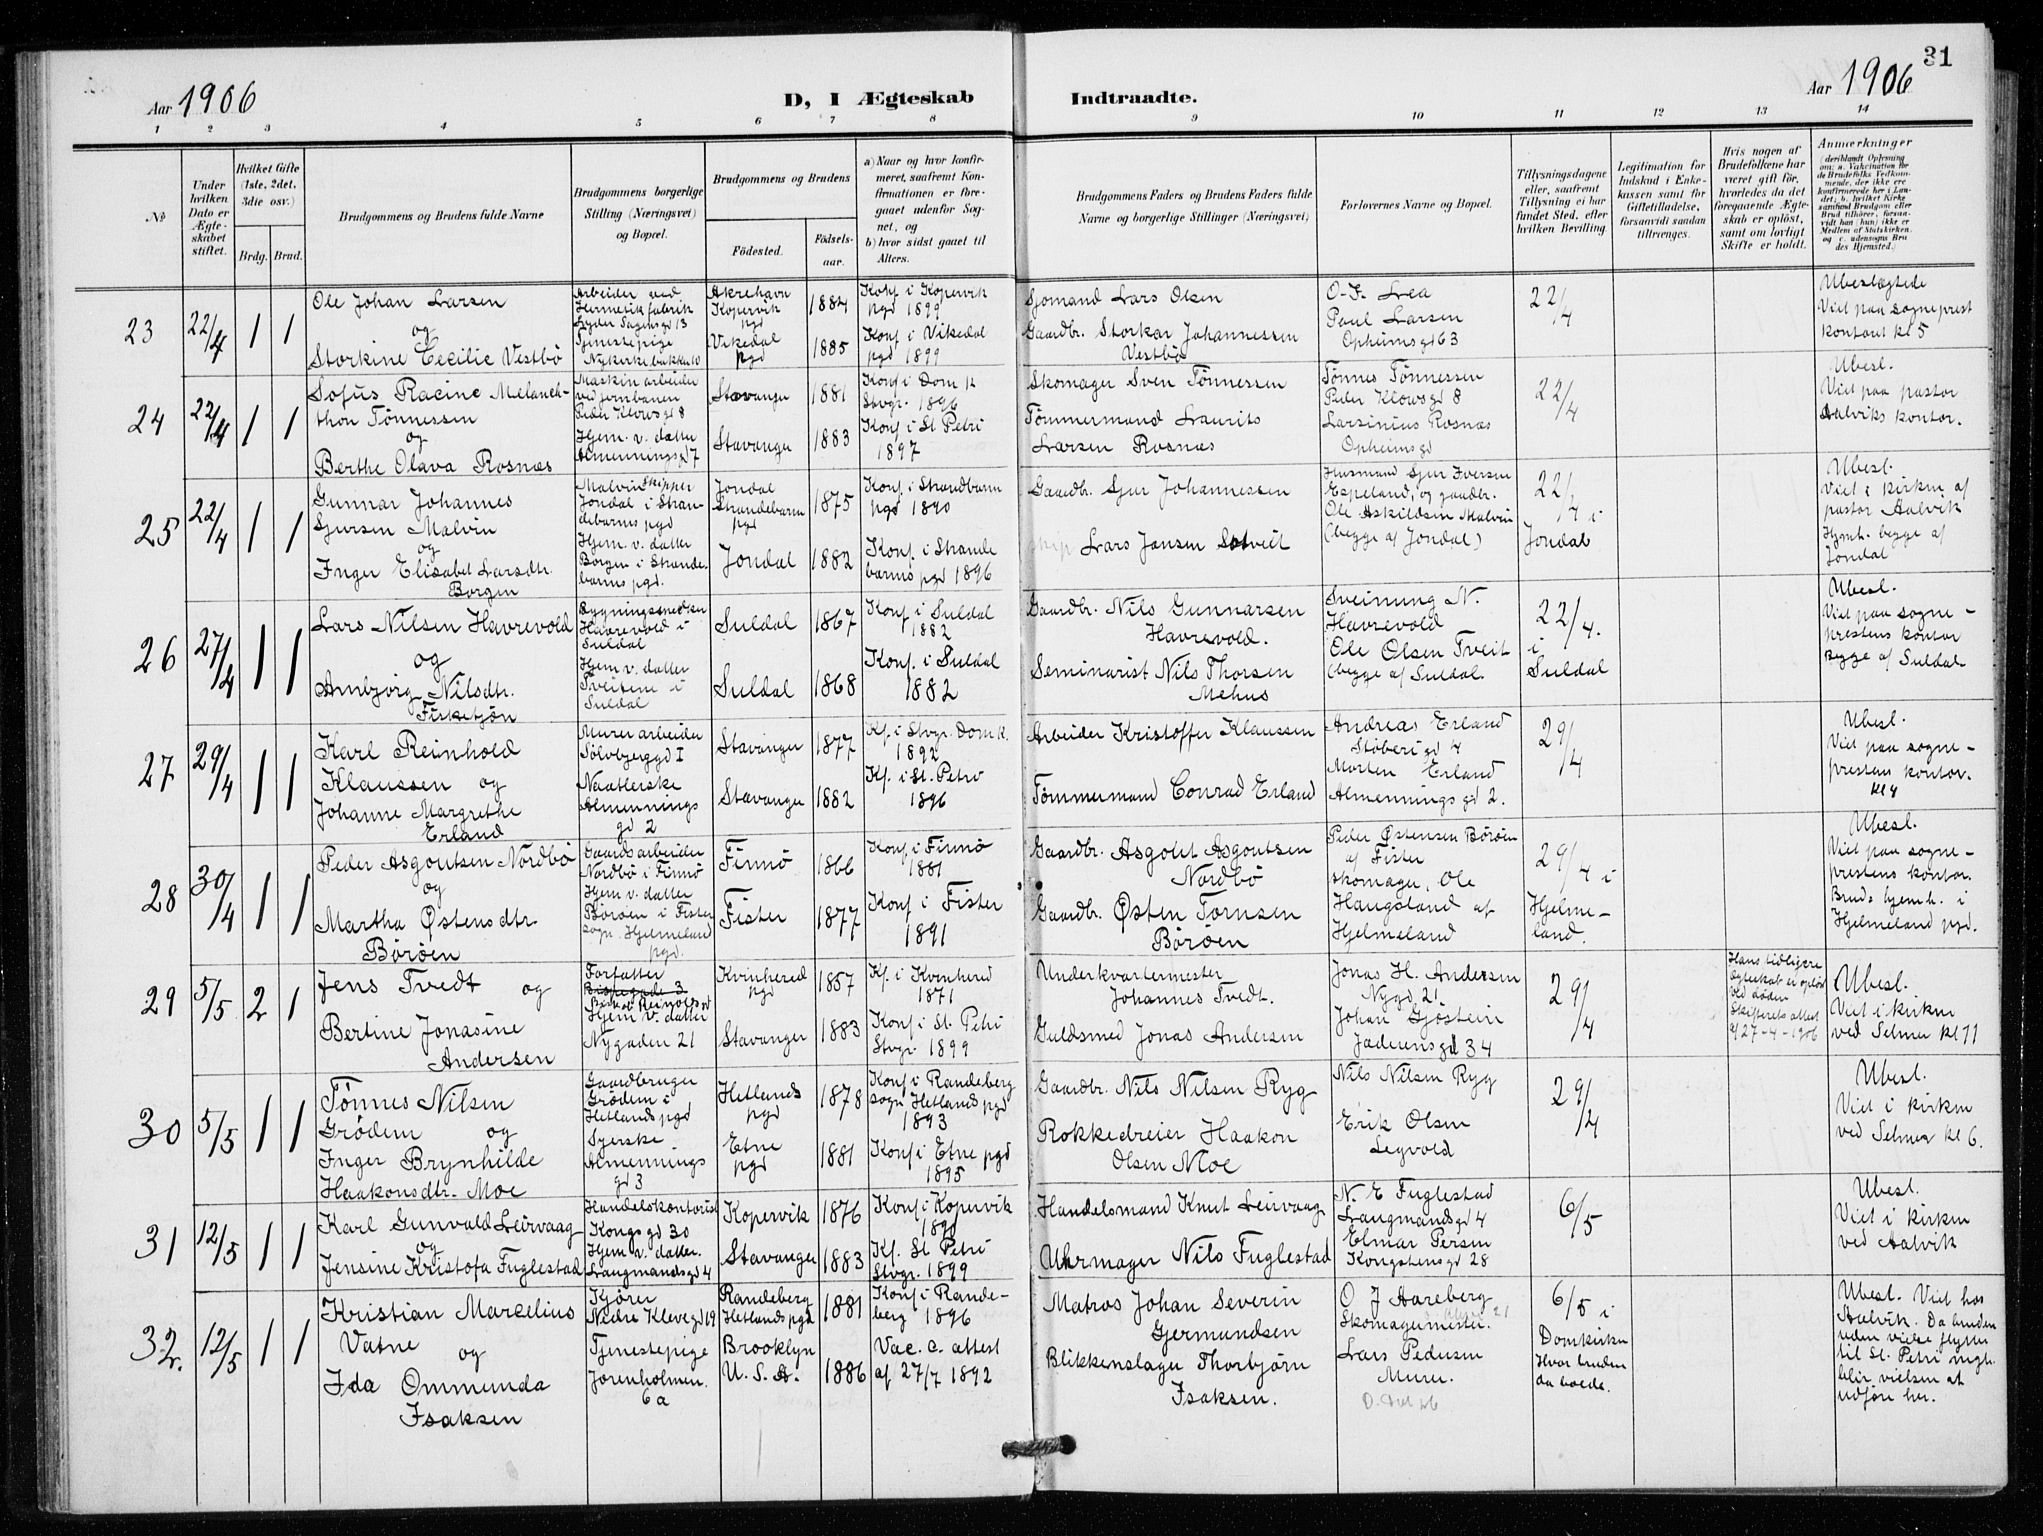 31
Aar 1906
D, I Ægteskab Indtraadte.
Aar 1906
1 2 3 4 5 6 7 8 9 10 11 12 13 14
No
Under hvilken Dato er Ægteskabet stiftet.
Hvilket Gifte (1ste, 2det, 3die osv.)
Brdg. Brud.
Brudgommens og Brudens fulde Navne
Brudgommens borgerlige Stilling (Næringsvei) og Bopæl.
Brudgommens og Brudens
Födested.
Födsels-aar.
a) Naar og hvor konfirmeret, saafremt Konfirmationen er foregaaet udenfor Sognet, og
b) hvor sidst gaaet til Alters.
Brudgommens Faders og Brudens Faders fulde Navne og borgerlige Stillinger (Næringsvei)
Forlovernes Navne og Bopæl.
Tillysningsdagene eller, saafremt Tillysning ei har fundet Sted, efter hvilken Bevilling.
Legitimation for Indskud i Enkekassen samt for Giftetilladelse, forsaavidt saadan tiltrænges.
Hvis nogen af Brudefolkene har været gift før, hvorledes da det foregaaende Ægteskab er opløst, samt om lovligt Skifte er holdt.
Anmærkninger
(deriblandt Oplysning om: a. Vakcination for de Brudefolks Vedkommende, der ikke ere konfirmerede her i Landet; b. hvilket Kirkesamfund Brudgom eller Brud tilhører, forsaavidt han (hun) ikke er Medlem af Statskirken, og c. udensogns Brudes Hjemsted.)
23
22/4
1 1
Ole Johan Larsen
og
Storkine Cecilie Vestbö
Arbeider ved
Hermetikfabrik
Lyder Sagensgd 13
Tjenestepige
Nykirkebakken 10
Akrehavn
Kopervik
pgd
Vikedal
pgd
1884
1885
Konf. i Kopervik
pgd 1899
Konf. i Vikedal
pgd 1899
Sjømand Lars Olsen
Gaardbr. Storkar Johannessen
Vestbö
O. F. Lea
Paul Larsen
Opheimsgd 63
22/4
Ubeslægtede
Viet paa sogneprest
kontoret kl 5
24
22/4
1 1
Sofus Racine Melanch-
thon Tönnessen
og
Berthe Olava Rosnæs
Maskinarbeider
ved jernbanen
Peder Klowsgd 8
Hjem. v. datter
Almenningsgd 7
Stavanger
Stavanger
1881
1883
Konf. i Dom k
Stvgr. 1896
Konf. i St Petri
1897
Skomager Sven Tönnessen
Tömmermand Laurits
Larsen Rosnæs
Tönnes Tönnessen
Peder Klowsgd 8
Larsinius Rosnæs
Opheimsgd
22/4
Ubesl.
Viet paa pastor
Aalviks kontor.
25
22/4
1 1
Gunnar Johannes
Sjursen Malvin
og
Inger Elisabet Larsdtr.
Borgen
Malvin Skipper
Jondal i Stran-
debarms pgd
Hjem. v. datter
Borgen i Strande-
barms pgd.
Jondal
Strandebarm
pgd
Jondal
1875
1882
Konf. i Strandbarm
pgd 1890
Konf. i Strande
barms pgd 1896
Gaardbr. Sjur Johannessen
skip Lars Jansen Solveit
Husmand Sjur Iversen
Espeland, og gaardbr.
Ole Askildsen Malvin
(begge af Jondal)
22/4 i
Jondal
Ubesl.
Viet i kirken af
pastor Aalvik
Hjemh. begge af
Jondal
26
27/4
1 1
Lars Nilsen Havrevold
og
Ambjörg Nilsdtr.
Fisketjön
Bygningssnedker
Havrevold i
Suldal
Hjem v. datter
Tveiteni i
Suldal
Suldal
Suldal
1867
1868
Konf i Suldal
1882
Konf. i Suldal
1882
Gaardbr. Nils Gunnarsen
Havrevold.
Seminarist Nils Thorsen
Mehus
Sveinung N.
Havrevold
Ole Olsen Tveit
(begge af Suldal.
22/4.
i
Suldal
Ubesl.
Viet paa sogne-
prestens kontor
begge af Suldal
27
29/4
1 1
Karl Reinhold
Klaussen og
Johanne Margrethe
Erland
Murerarbeider
Sölvbjerggd I
Naatlerske
Almennings
gd 2
Stavanger
Stavanger
1877
1882
Kf. i Stvgr. Dom k.
1892
Kf. i St. Petri
1896
Arbeider Kristoffer Klaussen
Tømmermand Conrad Erland
Andreas Erland
Støberigd 4
Morten Erland
Almenningsgd 2.
29/4
Ubesl.
Viet paa sogne-
prestens kontor.
kl 4
28
30/4
1 1
Peder Asgoutsen Nordbö
og
Martha Østensdtr
Börøen
Gaardsarbeider
Nordbö i Finnö
Hjem v. datter
Börøen i Fister
sogn. Hjelmeland
pgd.
Finnö
Fister
1866
1877
Konf i Finnö
1881
Konf i Fister
1891
Gaardbr. Asgout Asgoutsen
Nordbö
Gaardbr. Østen Tornsen
Börøen
Peder Østensen Börøen
af Fister
skomager, Ole
Haugaland af
Hjelmeland
29/4 i
Hjelme-
land.
Ubesl.
Viet paa sogne-
prestens kontor.
Bruds hjemh. i
Hjelmeland pgd.
29
5/5
2 1
Jens Tvedt og
Bertine Jonasine
Andersen
Forfatter
Bispegade 3
Biskop Reinolsgd
Hjem v. datter
Nygaden 21
Kvinhered
pgd
Stavanger
1857
1883
Kf. i Kvinhered
1871
Konf i St. Petri
Stvgr 1899
Underkvartermester
Johannes Tvedt.
Guldsmed Jonas Andersen
Jonas H. Andersen
Nygd 21
Johan Gjöstein
Jæderensgd 34
29/4
Hans tidligere
ægteskab er opløst
ved døden
Skifterets attest
af 27-4-1906
Ubesl.
Viet i kirken
ved Selmer kl 11
30
5/5
1 1
Tönnes Nilsen
Grödem og
Inger Brynhilde
Haakonsdtr. Moe
Gaardbruger
Grödem i
Hetlands pgd
Syerske
Almennings
gd 3
Hetlands
pgd
Etne
pgd
1878
1881
Konf i Randeberg
sogn Hetlands pgd
1893
Konf i Etne pgd
1895
Gaardbr. Nils Nilsen Ryg
Rokkedreier Haakon
Olsen Moe
Nils Nilsen Ryg
Erik Olsen
Legvold
29/4
Ubesl.
Viet i kirken
ved Selmer kl 6.
31
12/5
1 1
Karl Gunvald Leirvaag
og
Jensine Kristofa Fuglestad
Handelskontorist
Kongsgd 30
Hjem v. datter.
Laugmandsgd 4
Kopervik
Stavanger
1876
1883
Konf i Kopervik
1890
Kf. St Petri
Stvgr. 1899
Handelsmand Knut Leirvaag
Uhrmager Nils Fuglestad
N. E Fuglestad
Laugmandsgd 4
Elmar Persen
Kongstensgd 28
6/5
Ubesl.
Viet i kirken
ved Aalvik
32.
12/5
1 1
Kristian Marselius
Vatne og
Ida Ommunda
Isaksen
Kjører
Nedre Klevegd 19
Tjenestepige
Jorenholmen.
6a
Randeberg
Hetlands pgd
Brooklyn
U. S. A.
1881
1886
Konf i Rande-
berg 1896
Vac. a. attest
af 27/7 1892
Matros Johan Severin
Germundsen
Blikkenslager Thorbjörn
Isaksen.
O J Aareberg
Skomagermester.
Lars Pedersen
Murer.
6/5 i
Domkirken
hvor bruden
da boede.
Ubesl. Viet hos
Aalvik. Da bruden
inden vielse flytter
til St. Petri mgh.
blir vielsen at
udføre her.